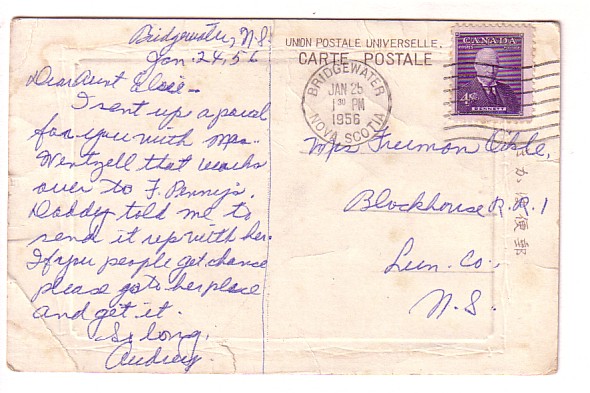 Bridgewater, N.S.
Jan. 24, 56
Dear Aunt Elsie -
I sent up a parcel
for you with Mrs.
Wentzell that works
over to F. Penny's.
Daddy told me to
send it up with her.
If you people get chance
please go to her place
and get it.
So long,
Audrey.
UNION POSTALE UNIVERSELLE.
CARTE POSTALE
BRIDGEWATER
JAN 25
1 30 PM
1956
NOVA SCOTIA
POSTES POSTAGE
CANADA
4¢
BENNETT
Mrs Freeman
Blockhouse R.R. 1
Lun. Co.,
N.S.
便郵